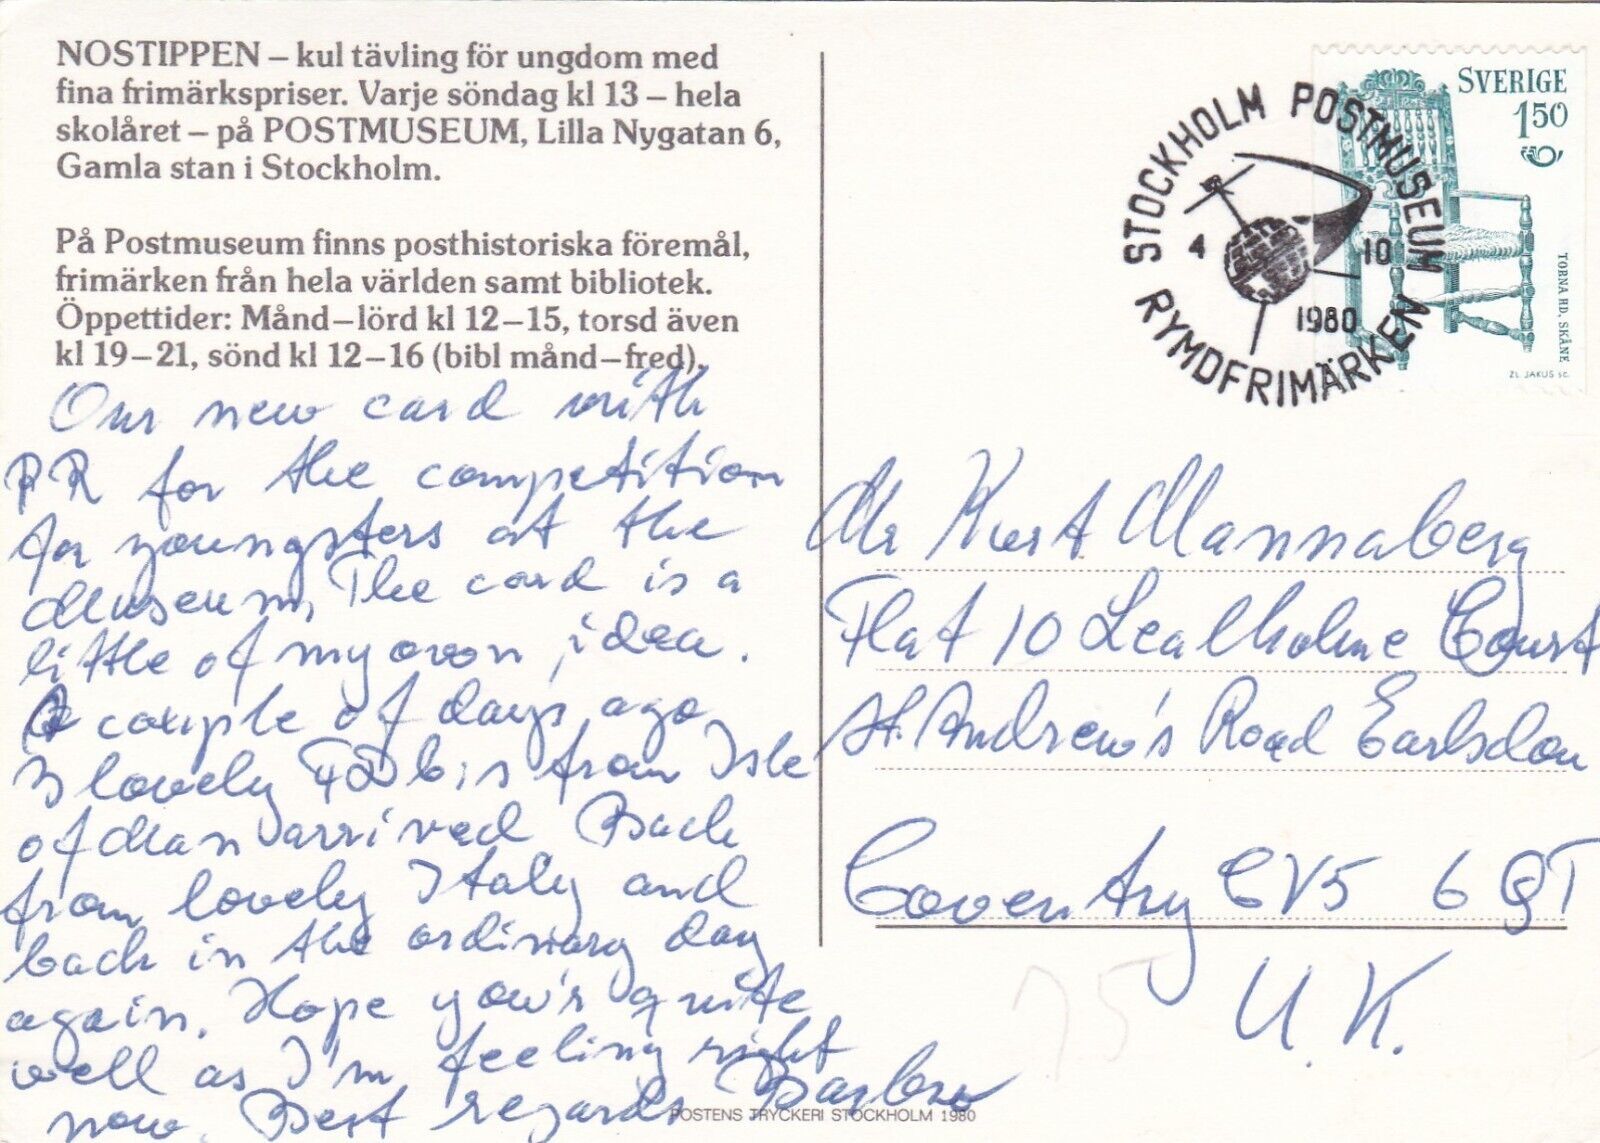 NOSTIPPEN – kul tävling för ungdom med
fina frimärkspriser. Varje söndag kl 13 – hela
skolåret – på POSTMUSEUM, Lilla Nygatan 6,
Gamla stan i Stockholm.
På Postmuseum finns posthistoriska föremål,
frimärken från hela världen samt bibliotek.
Öppettider: Månd–lörd kl 12–15, torsd även
kl 19–21, sönd kl 12–16 (bibl månd–fred).
Our new card with
PR for the competition
for youngsters at the
Museum. The card is a
little of my own idea.
A couple of days ago
3 lovely FDC:s from Isle
of Man arrived Back
from lovely Italy and
back in the ordinary day
again. Hope you's quite
well as I'm feeling right
now. Best regards Barbro
POSTENS TRYCKERI STOCKHOLM 1980
STOCKHOLM POSTMUSEUM
4 10
1980
RYMDFRIMÄRKEN
SVERIGE
150
TORNA RD, SKÅNE
ZL. JAKUS sc.
Mr Kurt Mannaberg
Flat 10 Lealholme Court
St. Andrew's Road Earlsdon
Coventry CV5 6 GT
U.K.
75